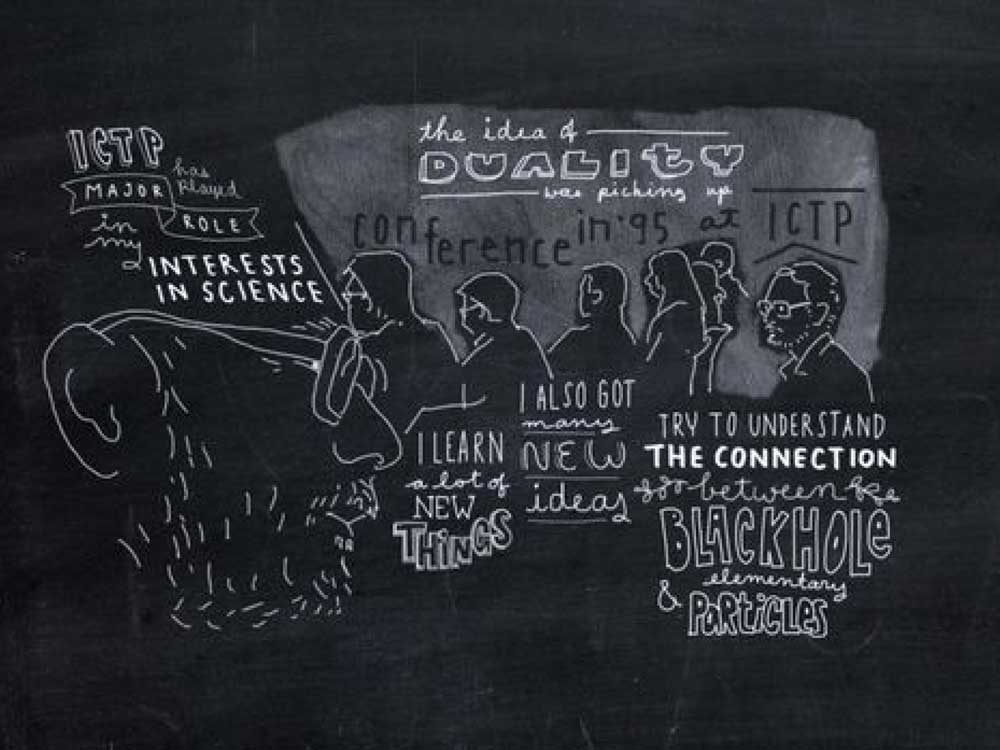 ICTP
has
played
MAJOR
ROLE
in
my
INTERESTS
IN SCIENCE
the idea of
DUALITY
was picking up
conference in '95 at ICTP
I LEARN
a lot of
NEW
THINGS
I ALSO GOT
many
NEW
ideas
TRY TO UNDERSTAND
THE CONNECTION
between
BLACKHOLE
& elementary
PARTICLES